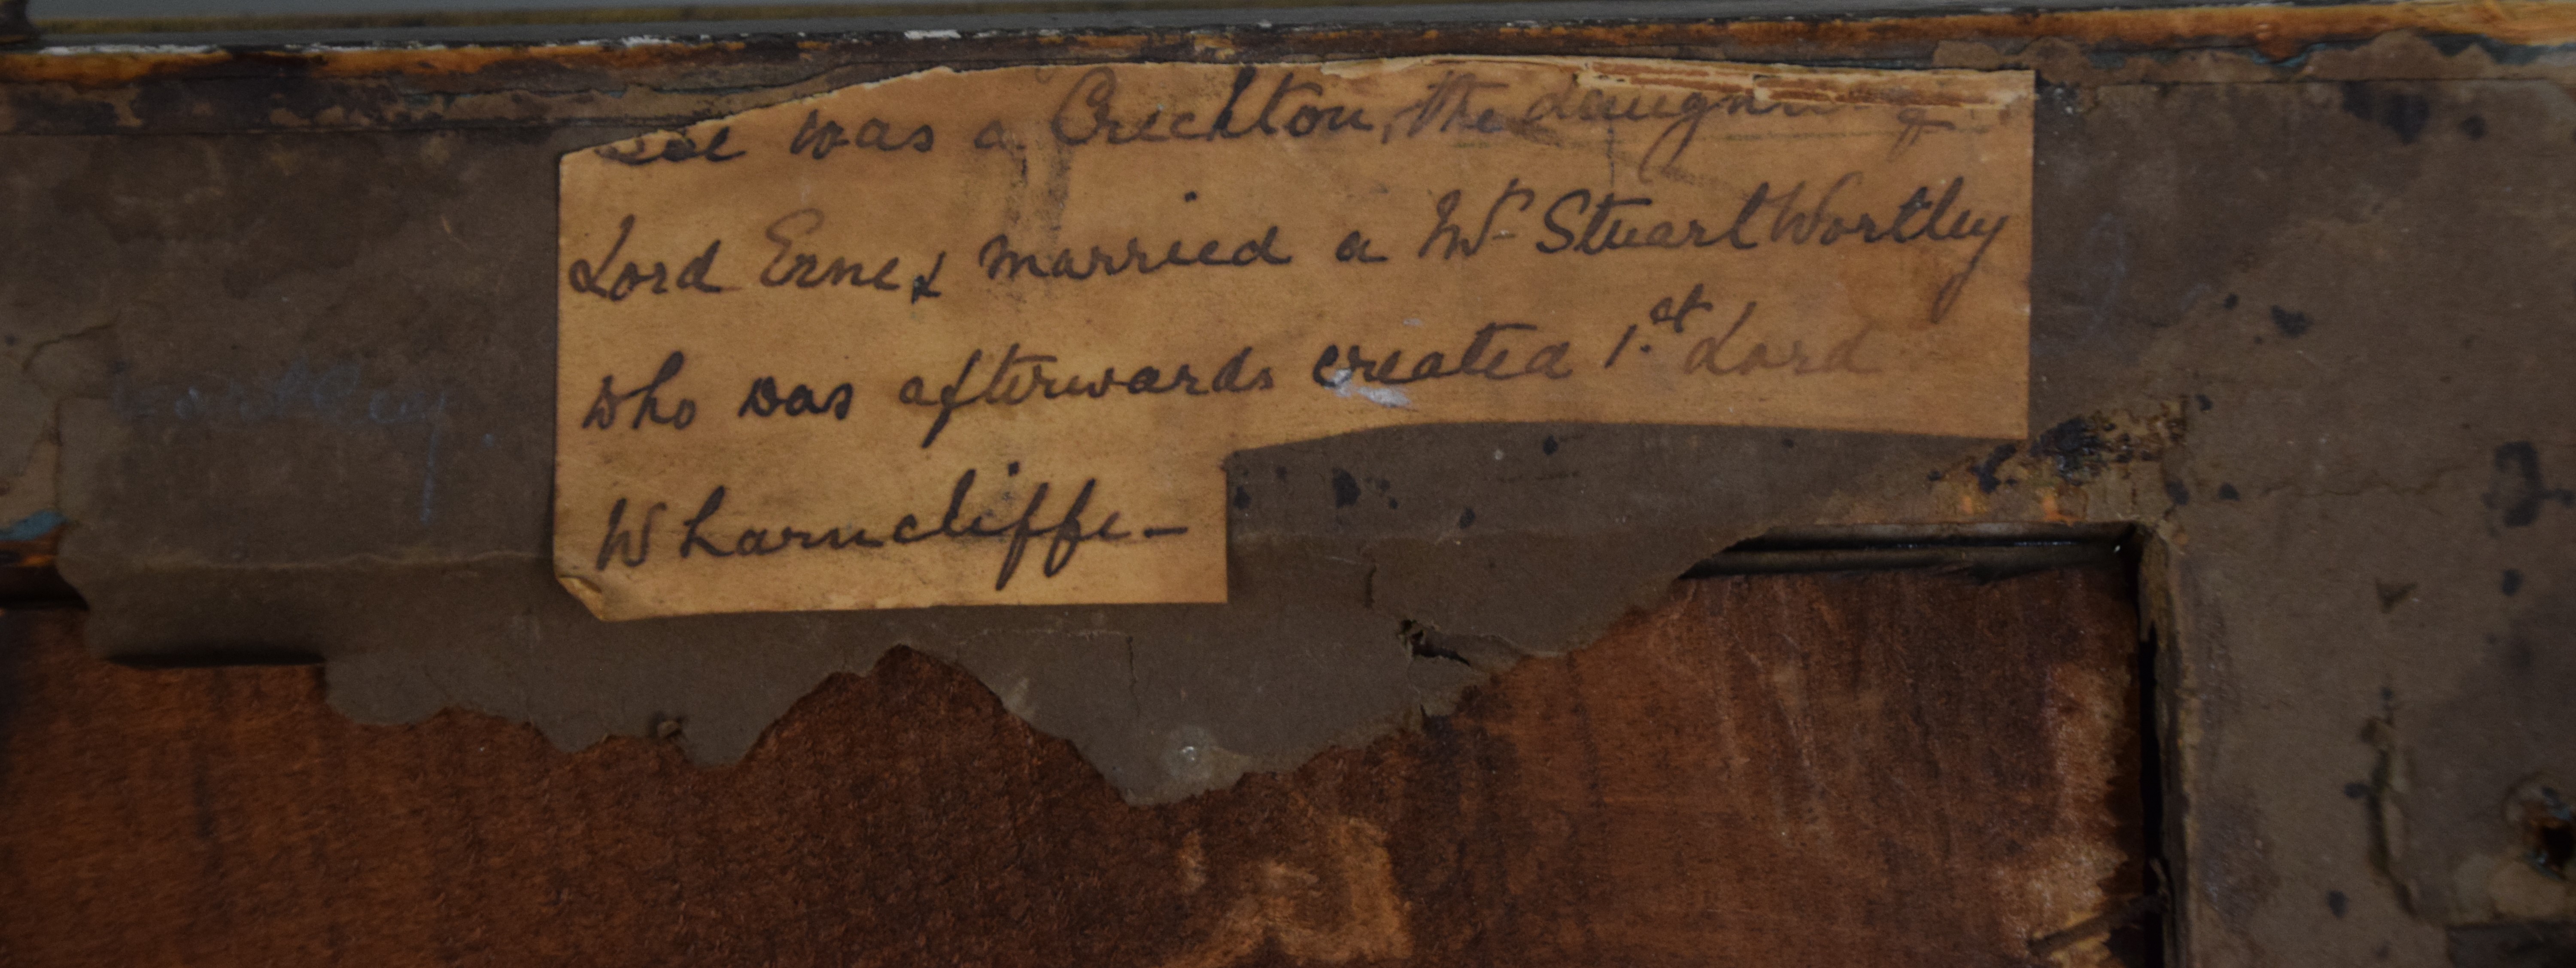 was a Crechton, the daughter of
Lord Erne & married a Mr Stuart Wortley
who was afterwards created 1st Lord
Wharncliffe —